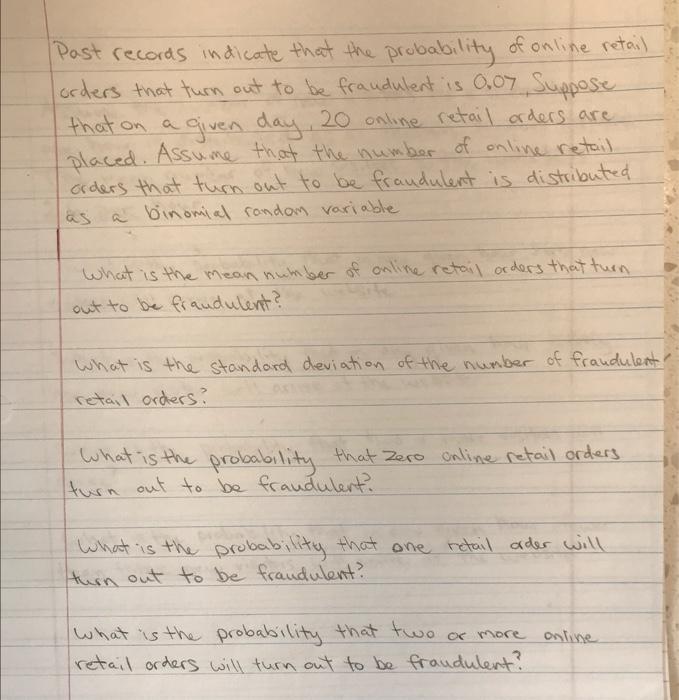 Past records indicate that the probability of online retail
orders that turn out to be fraudulent is 0.07, Suppose
that on a given day, 20 online retail orders are
placed. Assume that the number of online retail
orders that turn out to be fraudulent is distributed
as a binomial random variable
What is the mean number of online retail orders that turn
out to be fraudulent?
What is the standard deviation of the number of fraudulent
retail orders?
What is the probability that zero online retail orders
turn out to be fraudulent?
What is the probability that one retail order will
turn out to be fraudulent?
What is the probability that two or more online
retail orders will turn out to be fraudulent?